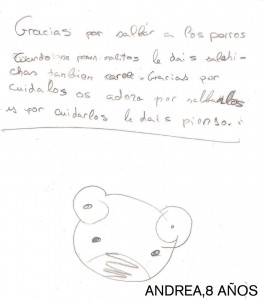 Gracias por salbar a los perros
ponen malitos le dais salchi-
chas tambien Gracias por
cuidalos os adora por
y por cuidarlos le dais pienso.
ANDREA,8 AÑOS